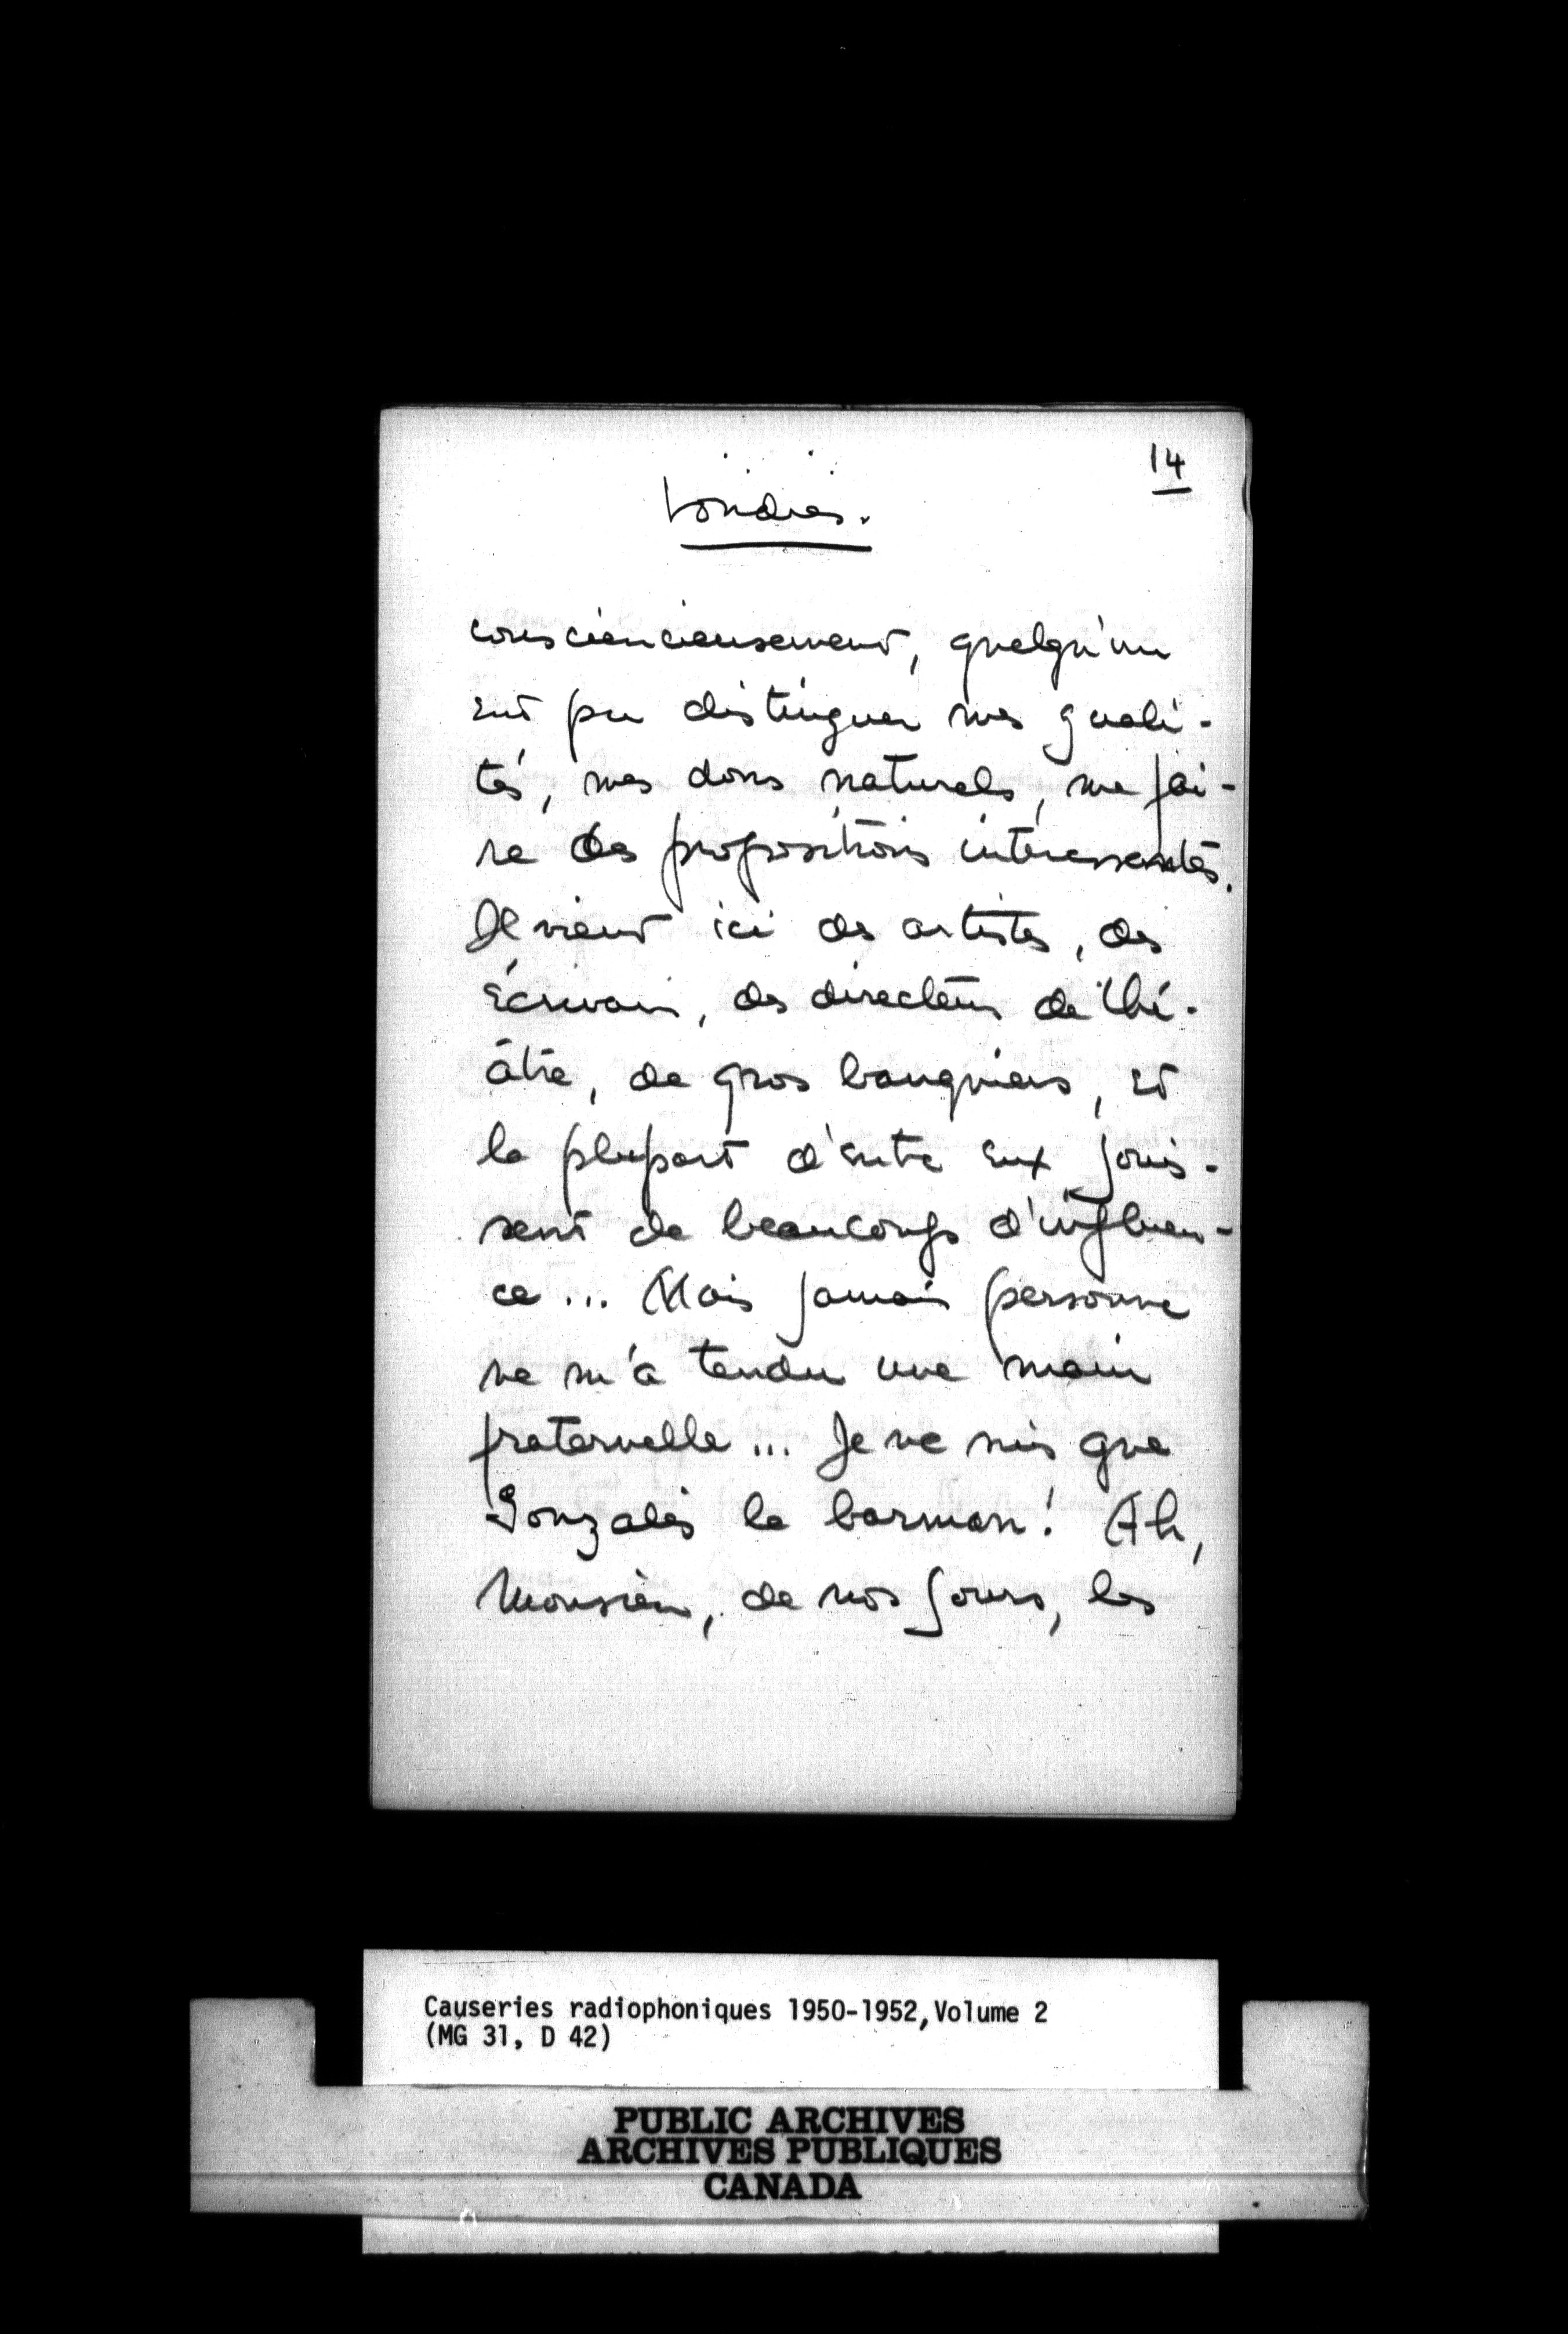 14
Londres.
consciencieusement, quelqu'un
eut pu distinguer mes quali-
tés, mes dons naturels, me fai-
re des propositions intéressantes.
Il vient ici des artistes, des
écrivains, des directeurs de thé-
âtre, de gros banquiers, et
la plupart d'entre eux jouis-
sent de beaucoup d'influen-
ce... Mais jamais personne
ne m'a tendu une main
fraternelle... Je ne suis que
Gonzalès le barman! Ah,
Monsieur, de nos jours, les
Causeries radiophoniques 1950-1952, Volume 2
(MG 31, D 42)
PUBLIC ARCHIVES
ARCHIVES PUBLIQUES
CANADA